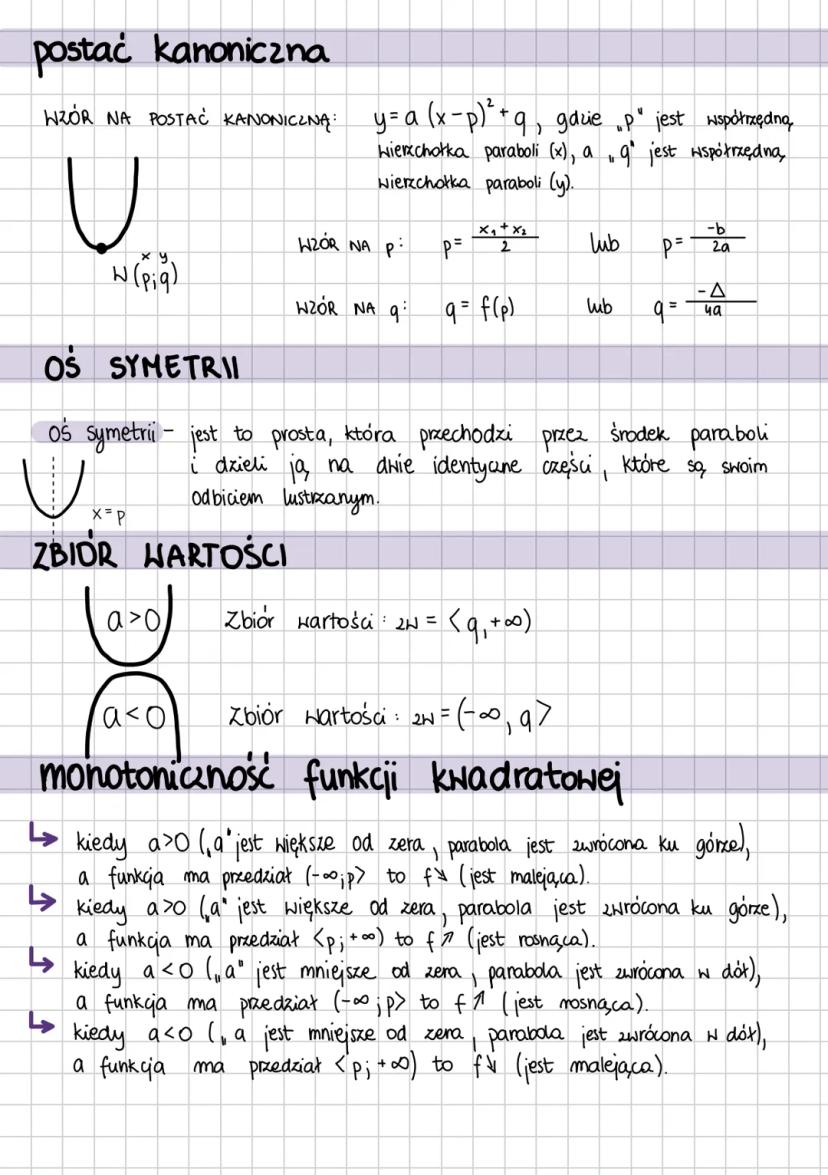 postać kanoniczna
WZÓR NA POSTAĆ KANONICZNĄ: y = a (x-p)² + q, gdzie „p" jest współrzędną
wierzchołka paraboli (x), a „q" jest współrzędną
wierzchołka paraboli (y).
x y
W (p;q)
WZÓR NA p: p = \frac{x₁+x₂}{2} lub p = \frac{-b}{2a}
WZÓR NA q: q = f(p) lub q = \frac{-Δ}{4a}
OŚ SYMETRII
oś symetrii - jest to prosta, która przechodzi przez środek paraboli
i dzieli ją na dwie identyczne części, które są swoim
odbiciem lustrzanym.
x = p
ZBIÓR WARTOŚCI
a>0 Zbiór wartości: ZW = <q,+∞)
a<0 Zbiór wartości: ZW = (-∞, q>
monotoniczność funkcji kwadratowej
↳ kiedy a>0 („a" jest większe od zera, parabola jest zwrócona ku górze),
a funkcja ma przedział (-∞;p> to f↘ (jest malejąca).
↳ kiedy a>0 („a" jest większe od zera, parabola jest zwrócona ku górze),
a funkcja ma przedział <p;+∞) to f↗ (jest rosnąca).
↳ kiedy a<0 („a" jest mniejsze od zera, parabola jest zwrócona w dół),
a funkcja ma przedział (-∞;p> to f↗ (jest rosnąca).
↳ kiedy a<0 („a jest mniejsze od zera, parabola jest zwrócona w dół),
a funkcja ma przedział <p;+∞) to f↘ (jest malejąca).